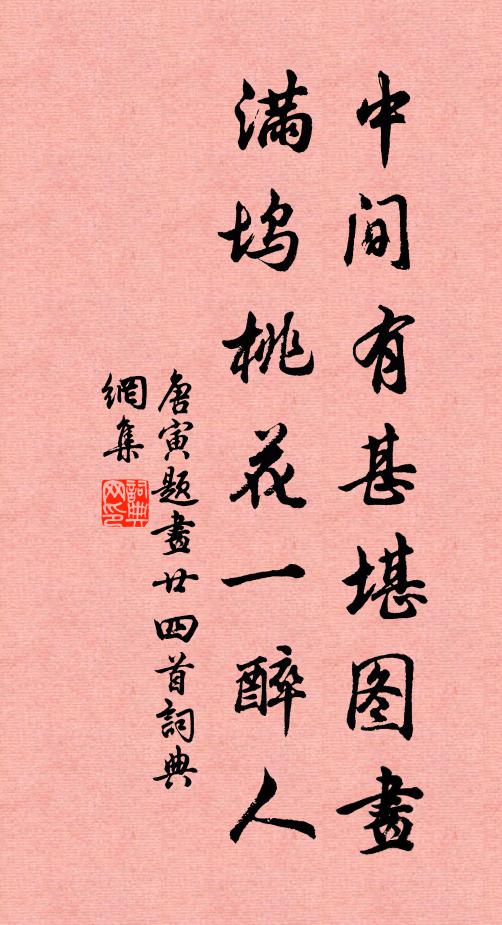 中间有甚堪图畫
满坞桃花一醉人
唐寅题畫廿四首詞典
網集
詞典网印